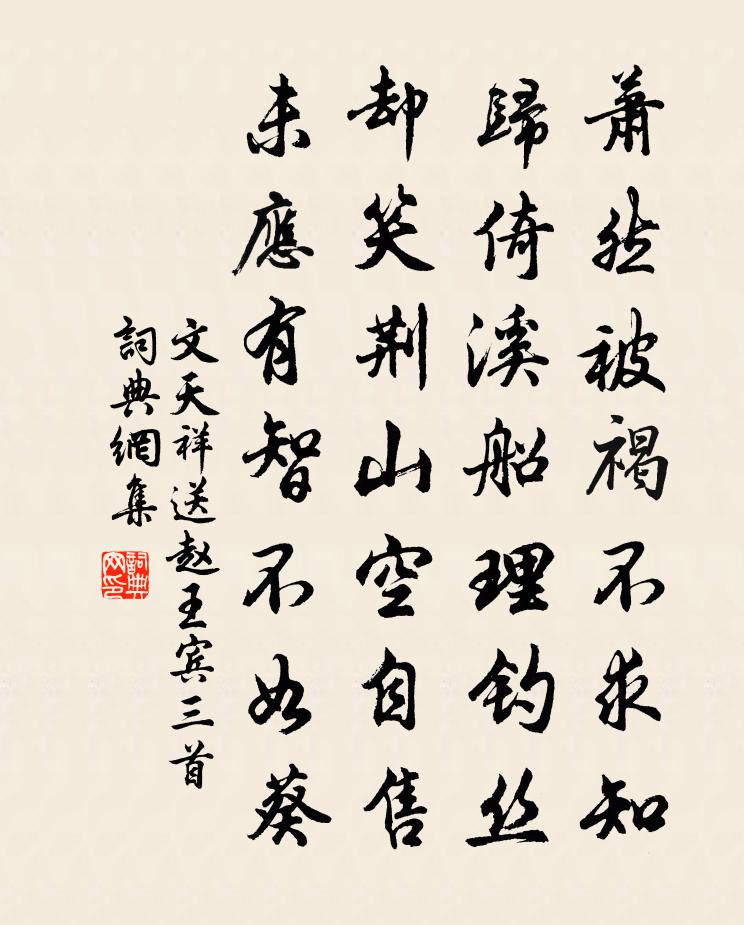 蕭然被褐不求知
歸倚溪船理釣丝
却笑荆山空自售
未應有智不如葵
文天祥送赵王宾三首
詞典網集
詞典网印